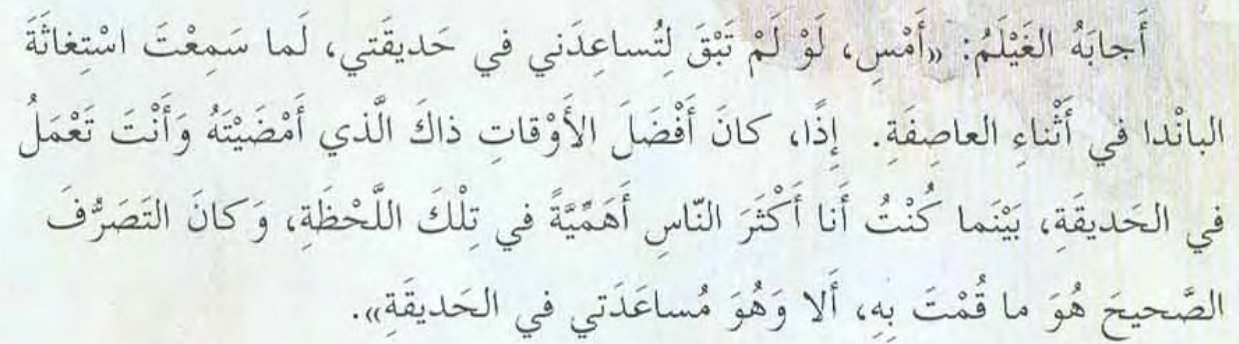 أَجابَهُ الغَيْلَمُ: «أَمْسِ، لَوْ لَمْ تَبْقَ لِتُساعِدَني في حَديقَتي، لَما سَمِعْتَ اسْتِغاثَةَ
البانْدا في أَثْناءِ العاصِفَةِ. إِذًا، كانَ أَفْضَلَ الأَوْقاتِ ذاكَ الَّذي أَمْضَيْتَهُ وَأَنْتَ تَعْمَلُ
في الحَديقَةِ، بَيْنَما كُنْتُ أَنا أَكْثَرَ النّاسِ أَهَمِّيَّةً في تِلْكَ اللَّحْظَةِ، وَكانَ التَصَرُّفَ
الصَّحيحَ هُوَ ما قُمْتَ بِهِ، أَلا وَهُوَ مُساعَدَتي في الحَديقَةِ».